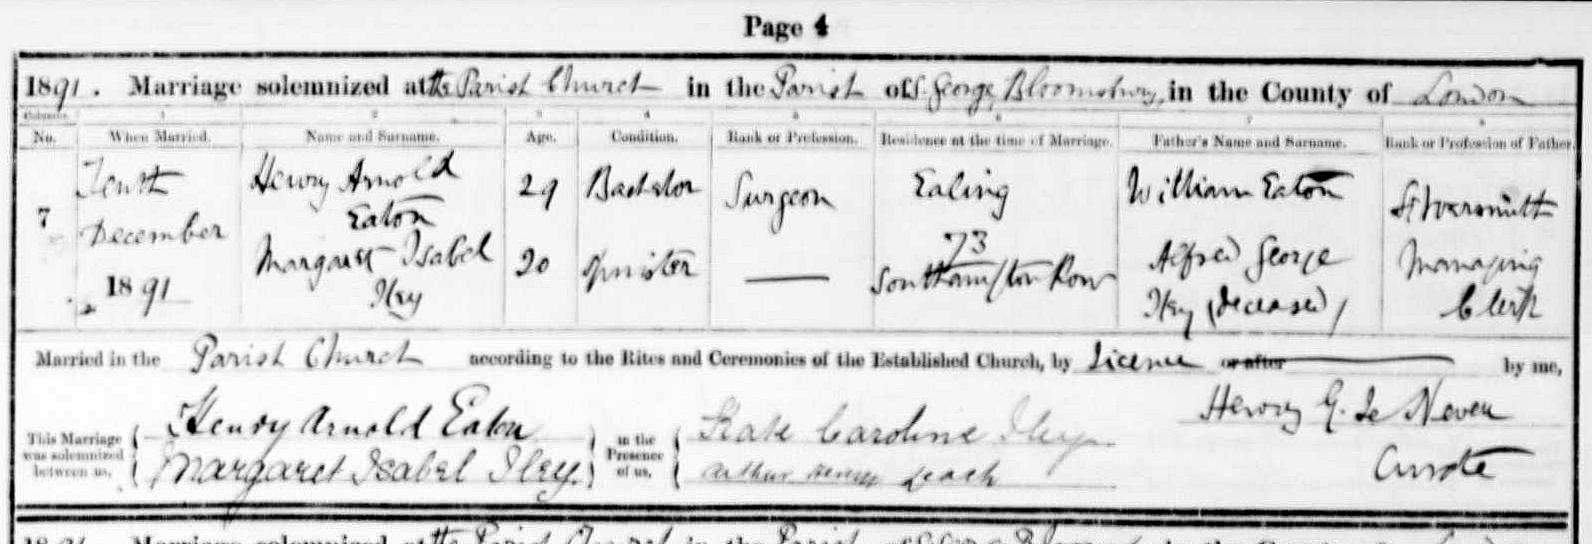 Page 4
1891. Marriage solemnized at the Parish Church in the Parish of St. George, Bloomsbury, in the County of London
Columns. 1 2 3 4 5 6 7 8
No. When Married. Name and Surname. Age. Condition. Rank or Profession. Residence at the time of Marriage. Father's Name and Surname. Rank or Profession of Father.
7 Tenth December 1891 Henry Arnold Eaton 29 Bachelor Surgeon Ealing William Eaton Silversmith
Margaret Isabel Iley 20 Spinster — 73 Southampton Row Alfred George Iley (deceased) Managing Clerk
Married in the Parish Church according to the Rites and Ceremonies of the Established Church, by Licence or after by me,
This Marriage was solemnized between us, Henry Arnold Eaton Margaret Isabel Iley. in the Presence of us, Kate Caroline Iley. Arthur Henry Leach Henry G. Le Neveu Curate
1891. Marriage solemnized at the Parish Church in the Parish of St. George Bloomsbury in the County of London